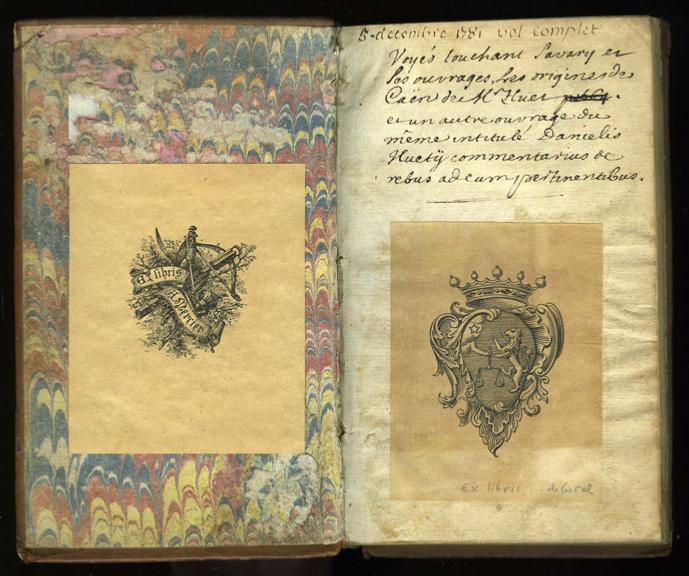 ex libris
A. Mercier
5 decembre 1781 vol complet
Voyés touchant Savary et
ses ouvrages, les origines de
Caën de Mr Huet
et un autre ouvrage du
même intitulé Danielis
Huetij commentarius de
rebus ad eum pertinentibus.
Ex libris